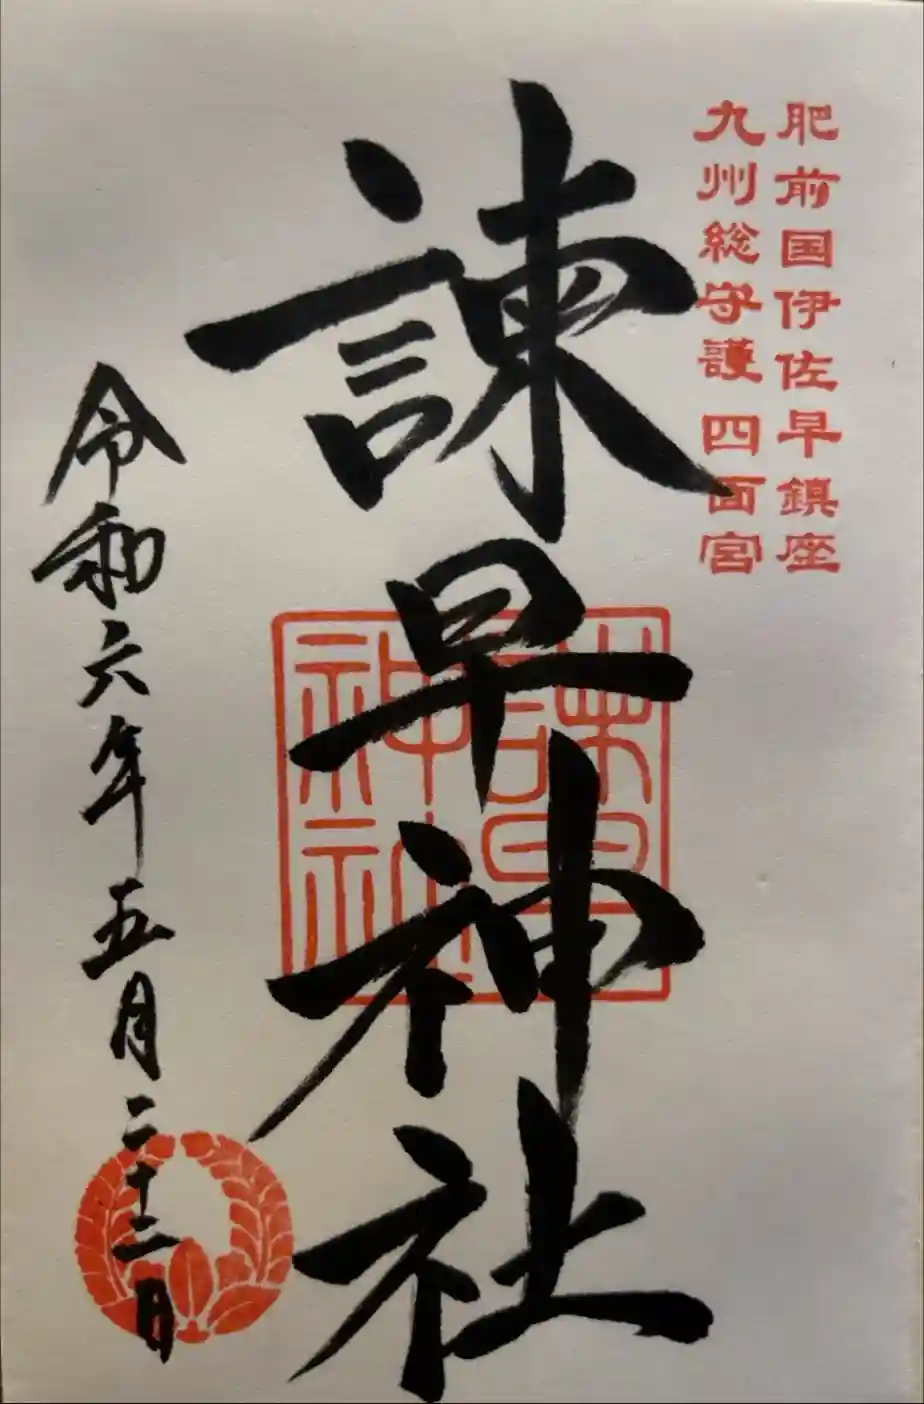 肥前国伊佐早鎮座
九州総守護 四面宮
諫早神社
諫早
神社
令和六年五月二十二日